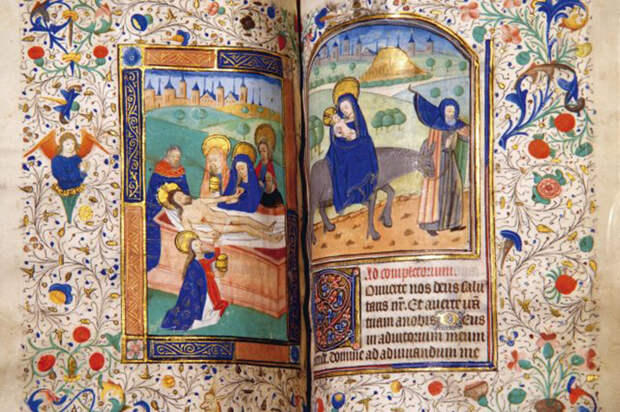 Ad completorium
Converte nos deus salu
taris nr̄. Et averte irā
tuam a nobis. Deus
in adiutorium meum
domine ad adiuvandum me